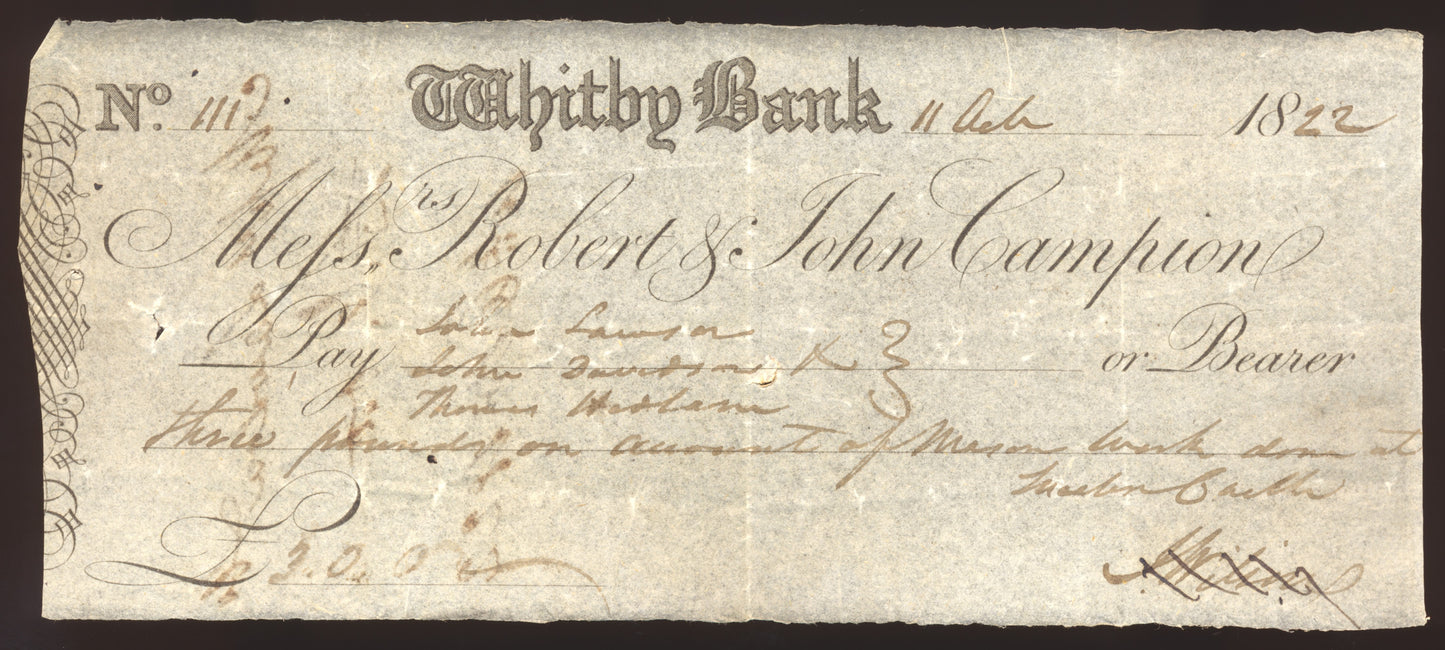 No. 111 Whitby Bank 11 Oct 1822
Messrs. Robert & John Campion
Pay John Lawson
John Davidson & or Bearer
Thomas
three pounds on account of Mason Work done at
Castle
£ 3. 0. 0